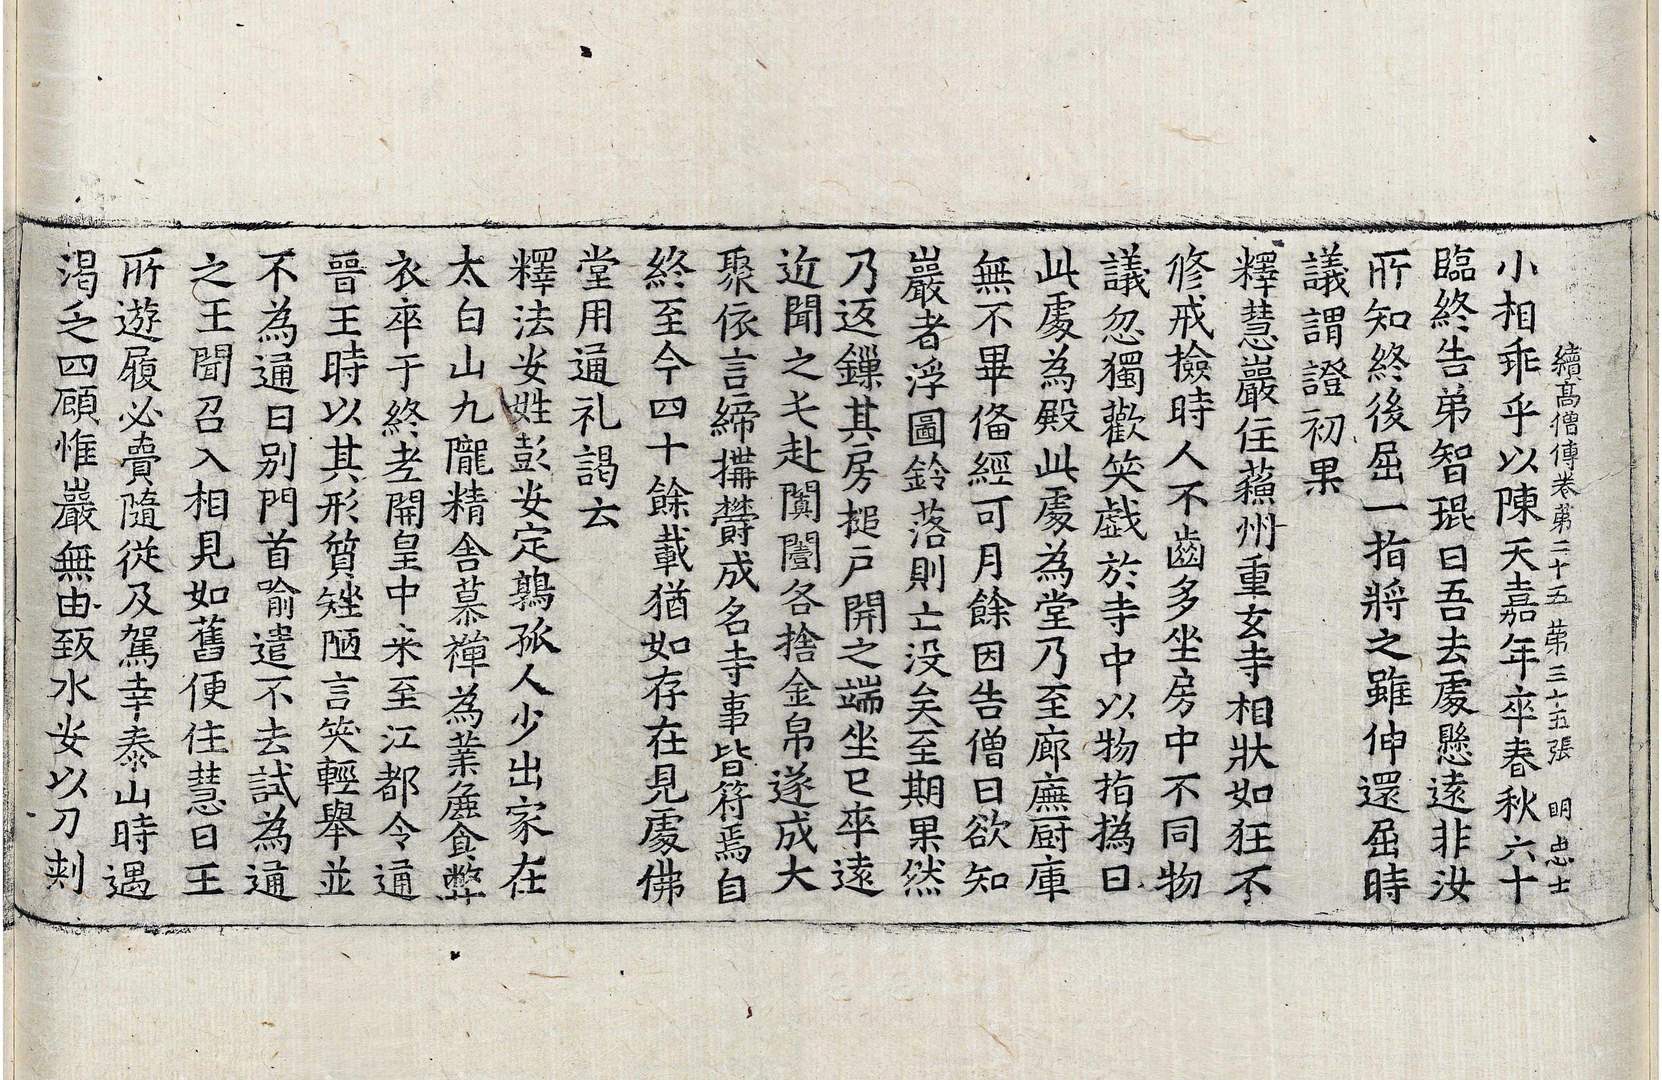 續高僧傳卷第二十五 第三十五張 明忠士
小相乖乎以陳天嘉年卒春秋六十
臨終告弟智琨曰吾去處懸遠非汝
所知終後屈一指將之雖伸還屈時
議謂證初果
釋慧巖住蘓州重玄寺相狀如狂不
修戒撿時人不齒多坐房中不同物
議忽獨歡笑戲於寺中以物指撝曰
此處為殿此處為堂乃至廊廡厨庫
無不畢俻經可月餘因告僧曰欲知
巖者浮圖鈴落則亡没矣至期果然
乃返鏁其房搥戶開之端坐已卒遠
近聞之尭赴闐闛各捨金帛遂成大
聚依言締構欝成名寺事皆符焉自
終至今四十餘載猶如存在見處佛
堂用通礼謁云
釋法安姓彭安定鶉孤人少出家在
太白山九隴精舍慕禪為業麁食弊
衣卒于終老開皇中来至江都令通
晉王時以其形質矬陋言笑輕舉並
不為通日别門首喻遣不去試為通
之王聞召入相見如舊便住慧日王
所遊履必賷隨從及駕幸泰山時遇
渴乏四顧惟巖無由致水安以刀刾